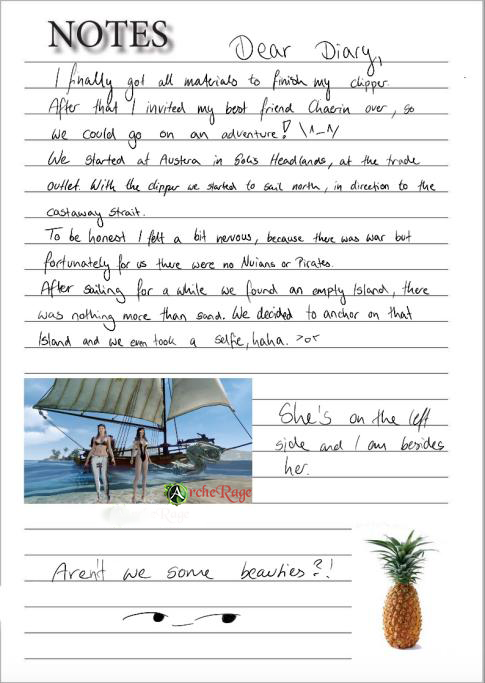 NOTES
Dear Diary,
I finally got all materials to finish my clipper.
After that I invited my best friend Chaerin over, so
we could go on an adventure! \^_^/
We started at Austera in Solis Headlands, at the trade
outlet. With the clipper we started to sail north, in direction to the
castaway strait.
To be honest I felt a bit nervous, because there was war but
fortunately for us there were no Nuians or Pirates.
After sailing for a while we found an empty Island, there
was nothing more than sand. We decided to anchor on that
Island and we even took a selfie, haha. >o<
She's on the left
side and I am besides
her.
ArcheRage
Aren't we some beauties?!